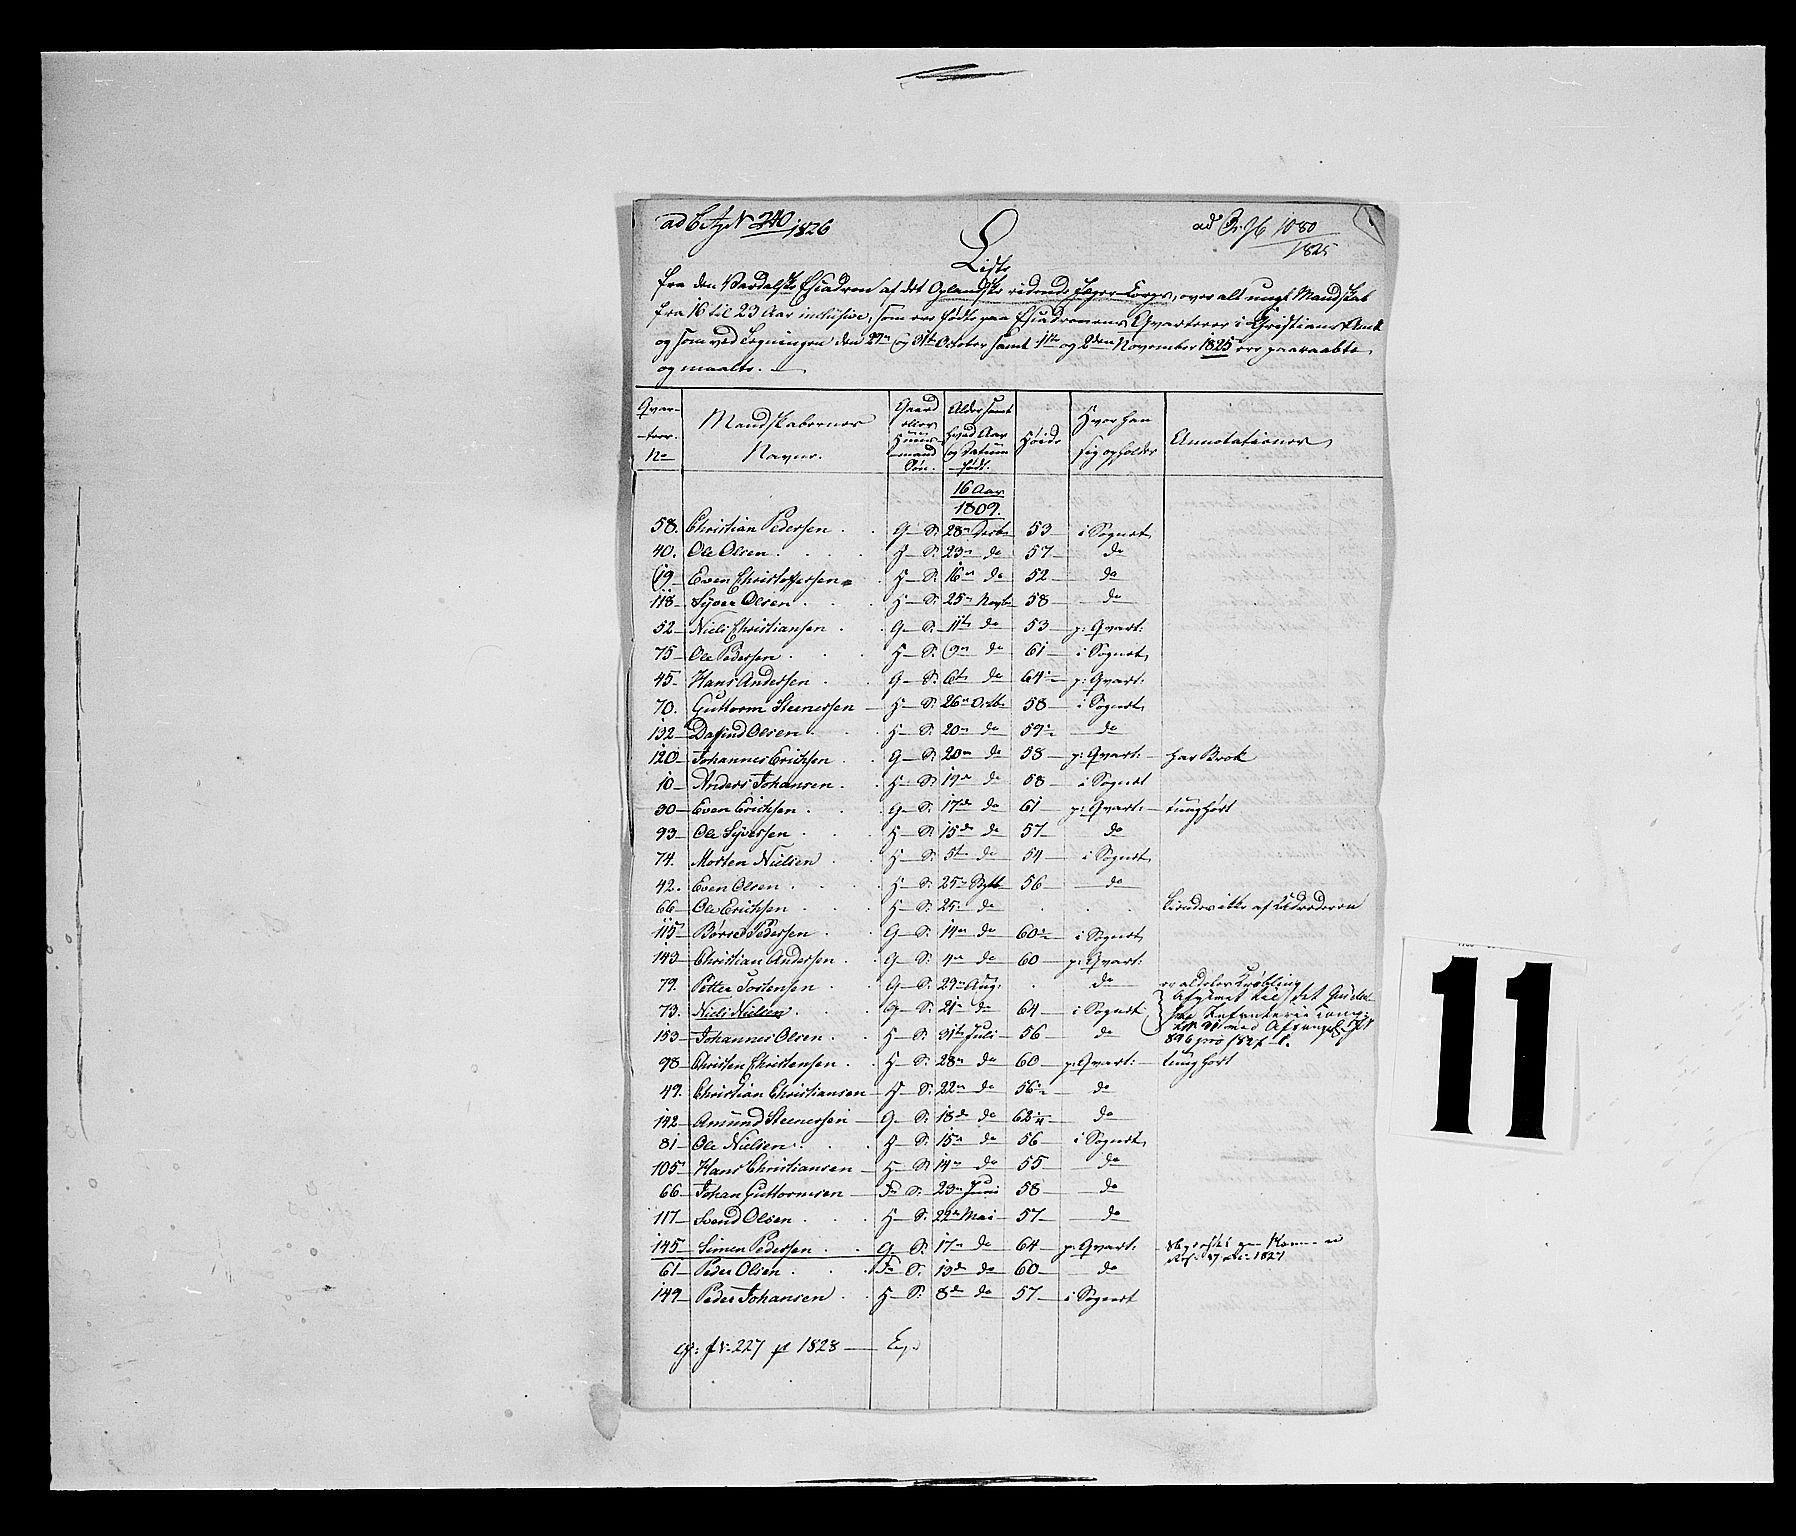 ad C. Aj. N 240/1826
ad 1080/1825
Liste
fra den Vardalske Escadron af det Oplandske ridende Jæger-Corps, over alt ungt Mandskab
fra 16 til 23 Aar inclusive, som ere fødte paa Escadronens Qvarterer i Christians Amt
og som ved Lægningen den 29de og 31te October samt 1te og 2den November 1825 ere paaraabte
og maalte.
Qvar-teer. No | Mandskabernes Navne. | Gaard eller Huus-mand Søn. | Alder samt hvad Aar og Datum født. | Høide | Hvor han sig opholder | Annotationer
16 Aar
1809.
58. Christian Pedersen G S. 28n Decb 53 i Sognet
40. Ole Olsen H S. 23n do 57 do
19 Even Christophersen H S. 16n do 52 do
118 Syver Olsen H S. 25n Novb 58 do
52 Niels Christiansen G S. 11te do 53 p: Qvart:
75 Ole Pedersen H S. 9n do 61 i Sognet
45 Hans Andersen G S. 6te do 64 p: Qvart:
70. Guttorm Steenersen H S. 26n Octb 58 i Sognet
132 Dafind Olsen H S. 20n do 59 do
120 Johannes Erichsen G S. 20n do 58 p: Qvart: har Brok
10 Anders Johansen H S. 19n do 58 i Sognet
30 Even Erichsen G S. 17de do 61 p: Qvart: tunghørt
93 Ole Syversen H S. 15de do 57 do
74. Morten Nielsen H S. 5te do 54 i Sognet
42. Even Olsen H S. 25n Septb 56 do
66 Ole Erichsen H S. 25n do kiendes ikke af
115 Børre Pedersen G S. 14n do 60 i Sognet
143 Christian Andersen G S. 4n do 60 p: Qvart:
79. Petter Tostensen G S. 29n Aug: do er aldeles Krøbling
73. Niels Nielsen G S. 21n do 64 i Sognet Afgivet til det
Infanterie
med
896 pro 1827
153 Johannes Olsen H S. 31te Juli 56 do
98 Christen Christensen H S. 28n do 60 p: Qvart: tunghørt
49. Christian Christiansen H S. 22n do 56 do
142 Amund Steenersen G S. 18de do 62 1/4 do
81 Ole Nielsen H S. 15n do 56 i Sognet
105 Hans Christiansen H S. 14n do 55 do
66 Johan Guttormsen S. 23n Juni 58 do
117 Svend Olsen H S. 22n Mai 57 do
145 Simen Pedersen G S. 17n do 64 p: Qvart:
1827
61 Peder Olsen S. 13de do 60 do
149 Peder Johansen H S. 8de do 57 i Sognet
cfr: J N: 227 p 1828
11